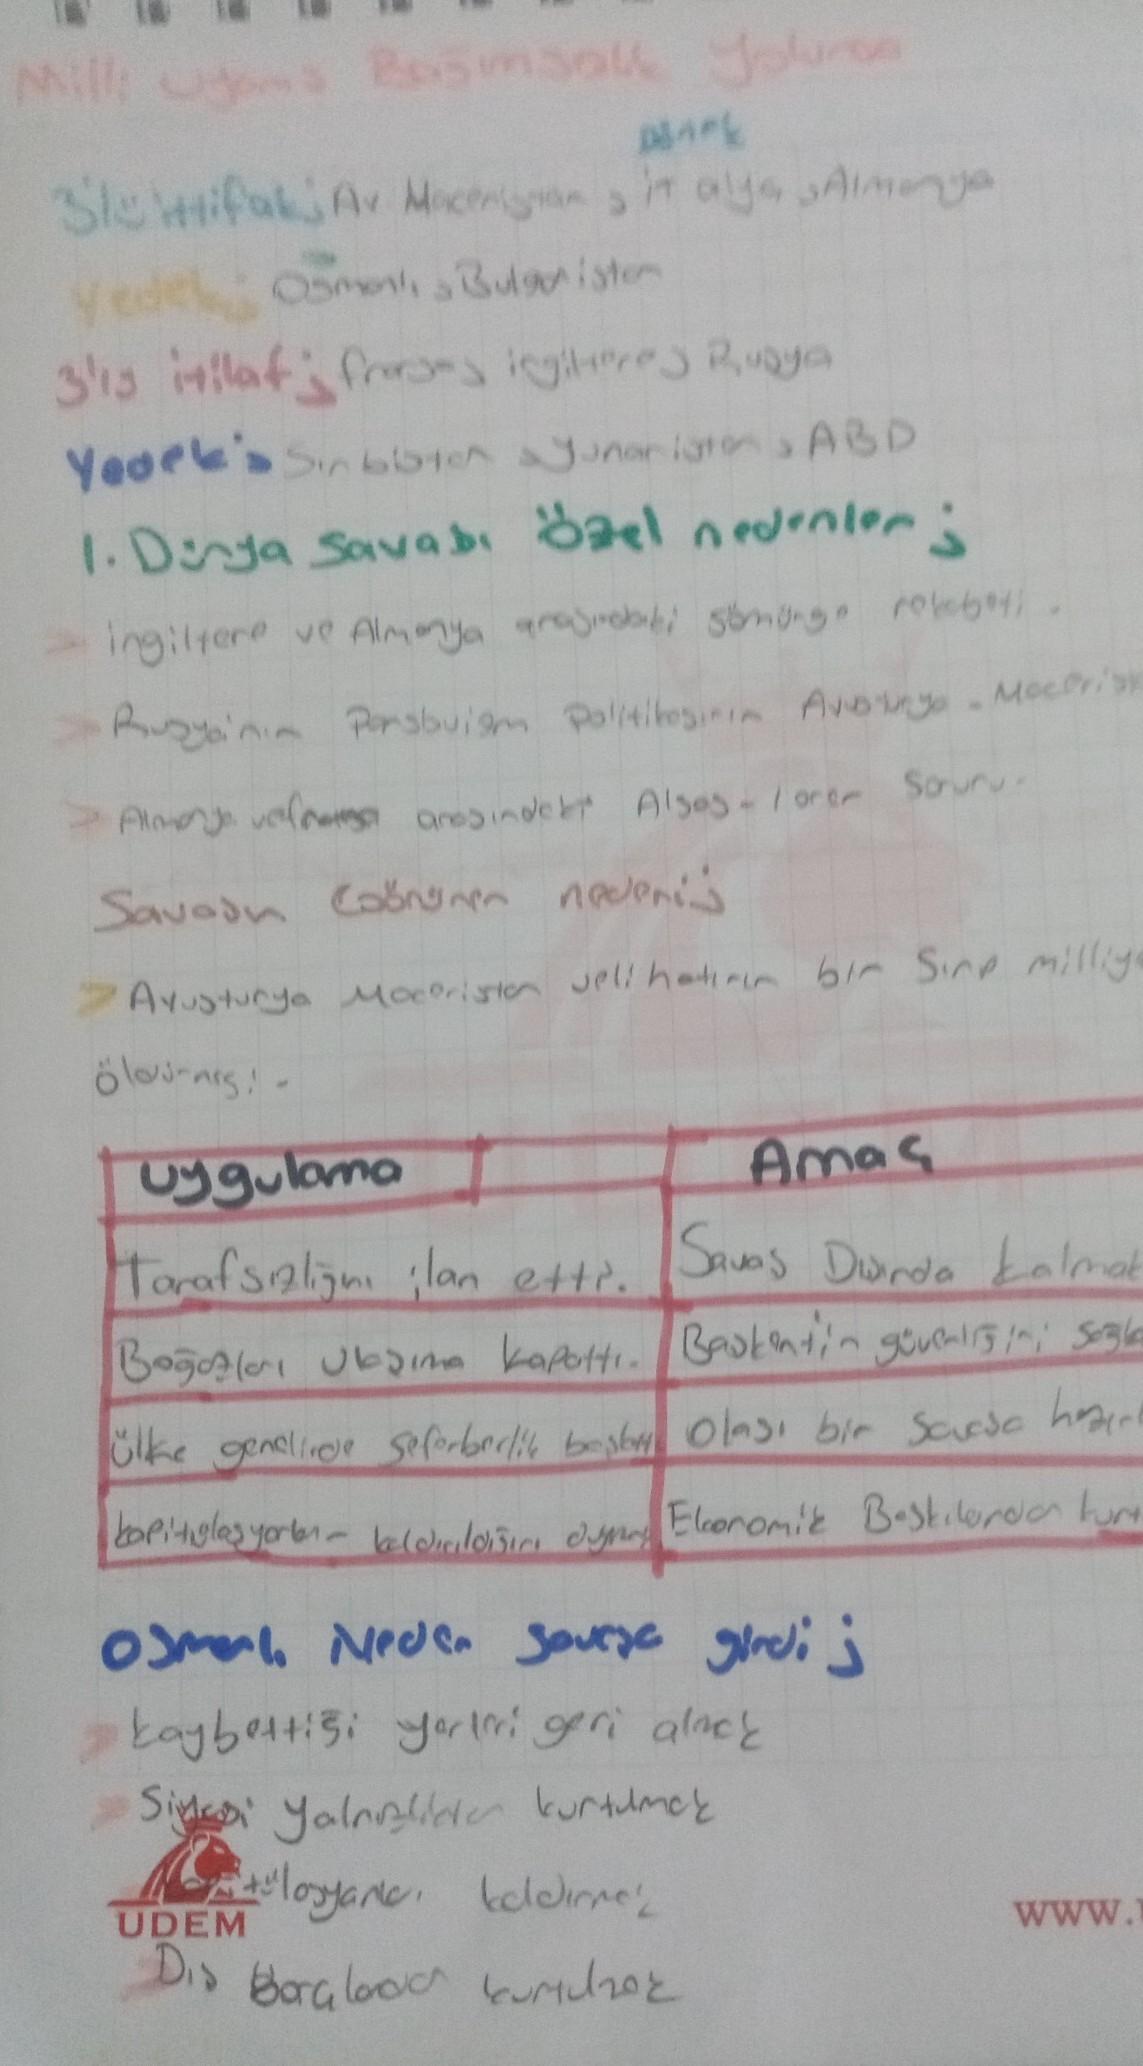 Milli Uyanış Bağımsızlık Yolunda
3'lü ittifak; Av Macaristan, italya, Almanya
Yedek; Osmanlı, Bulgaristan
3'lü itilaf; fransa, ingiltere, Rusya
Yedek; Sırbistan, Yunanistan, ABD
1. Dünya Savaşı özel nedenler;
ingiltere ve Almanya arasındaki sömürge rekabeti.
Rusya'nın Panslavizm Politikasının Avusturya-Macaris
Almanya ve fransa arasındaki Alsas-loren Sorunu.
Savaşın Görünen nedeni;
Avusturya Macaristan velihatının bir Sırp milliy
öldürmesi.
Uygulama Amaç
Tarafsızlığını ilan etti. Savaş Dışında kalmak
Boğazları ulaşıma kapattı. Başkentin güvenliğini sağla
Ülke genelinde seferberlik başlattı Olası bir savaşa hazırl
kapitülasyonların kaldırıldığını duyur Ekonomik Baskılardan kurt
Osmanlı Neden savaşa girdi;
kaybettiği yerleri geri almak
Siyasi yalnızlıktan kurtulmak
tülasyonları kaldırmak
Dış Borçlardan kurtulmak
UDEM
www.